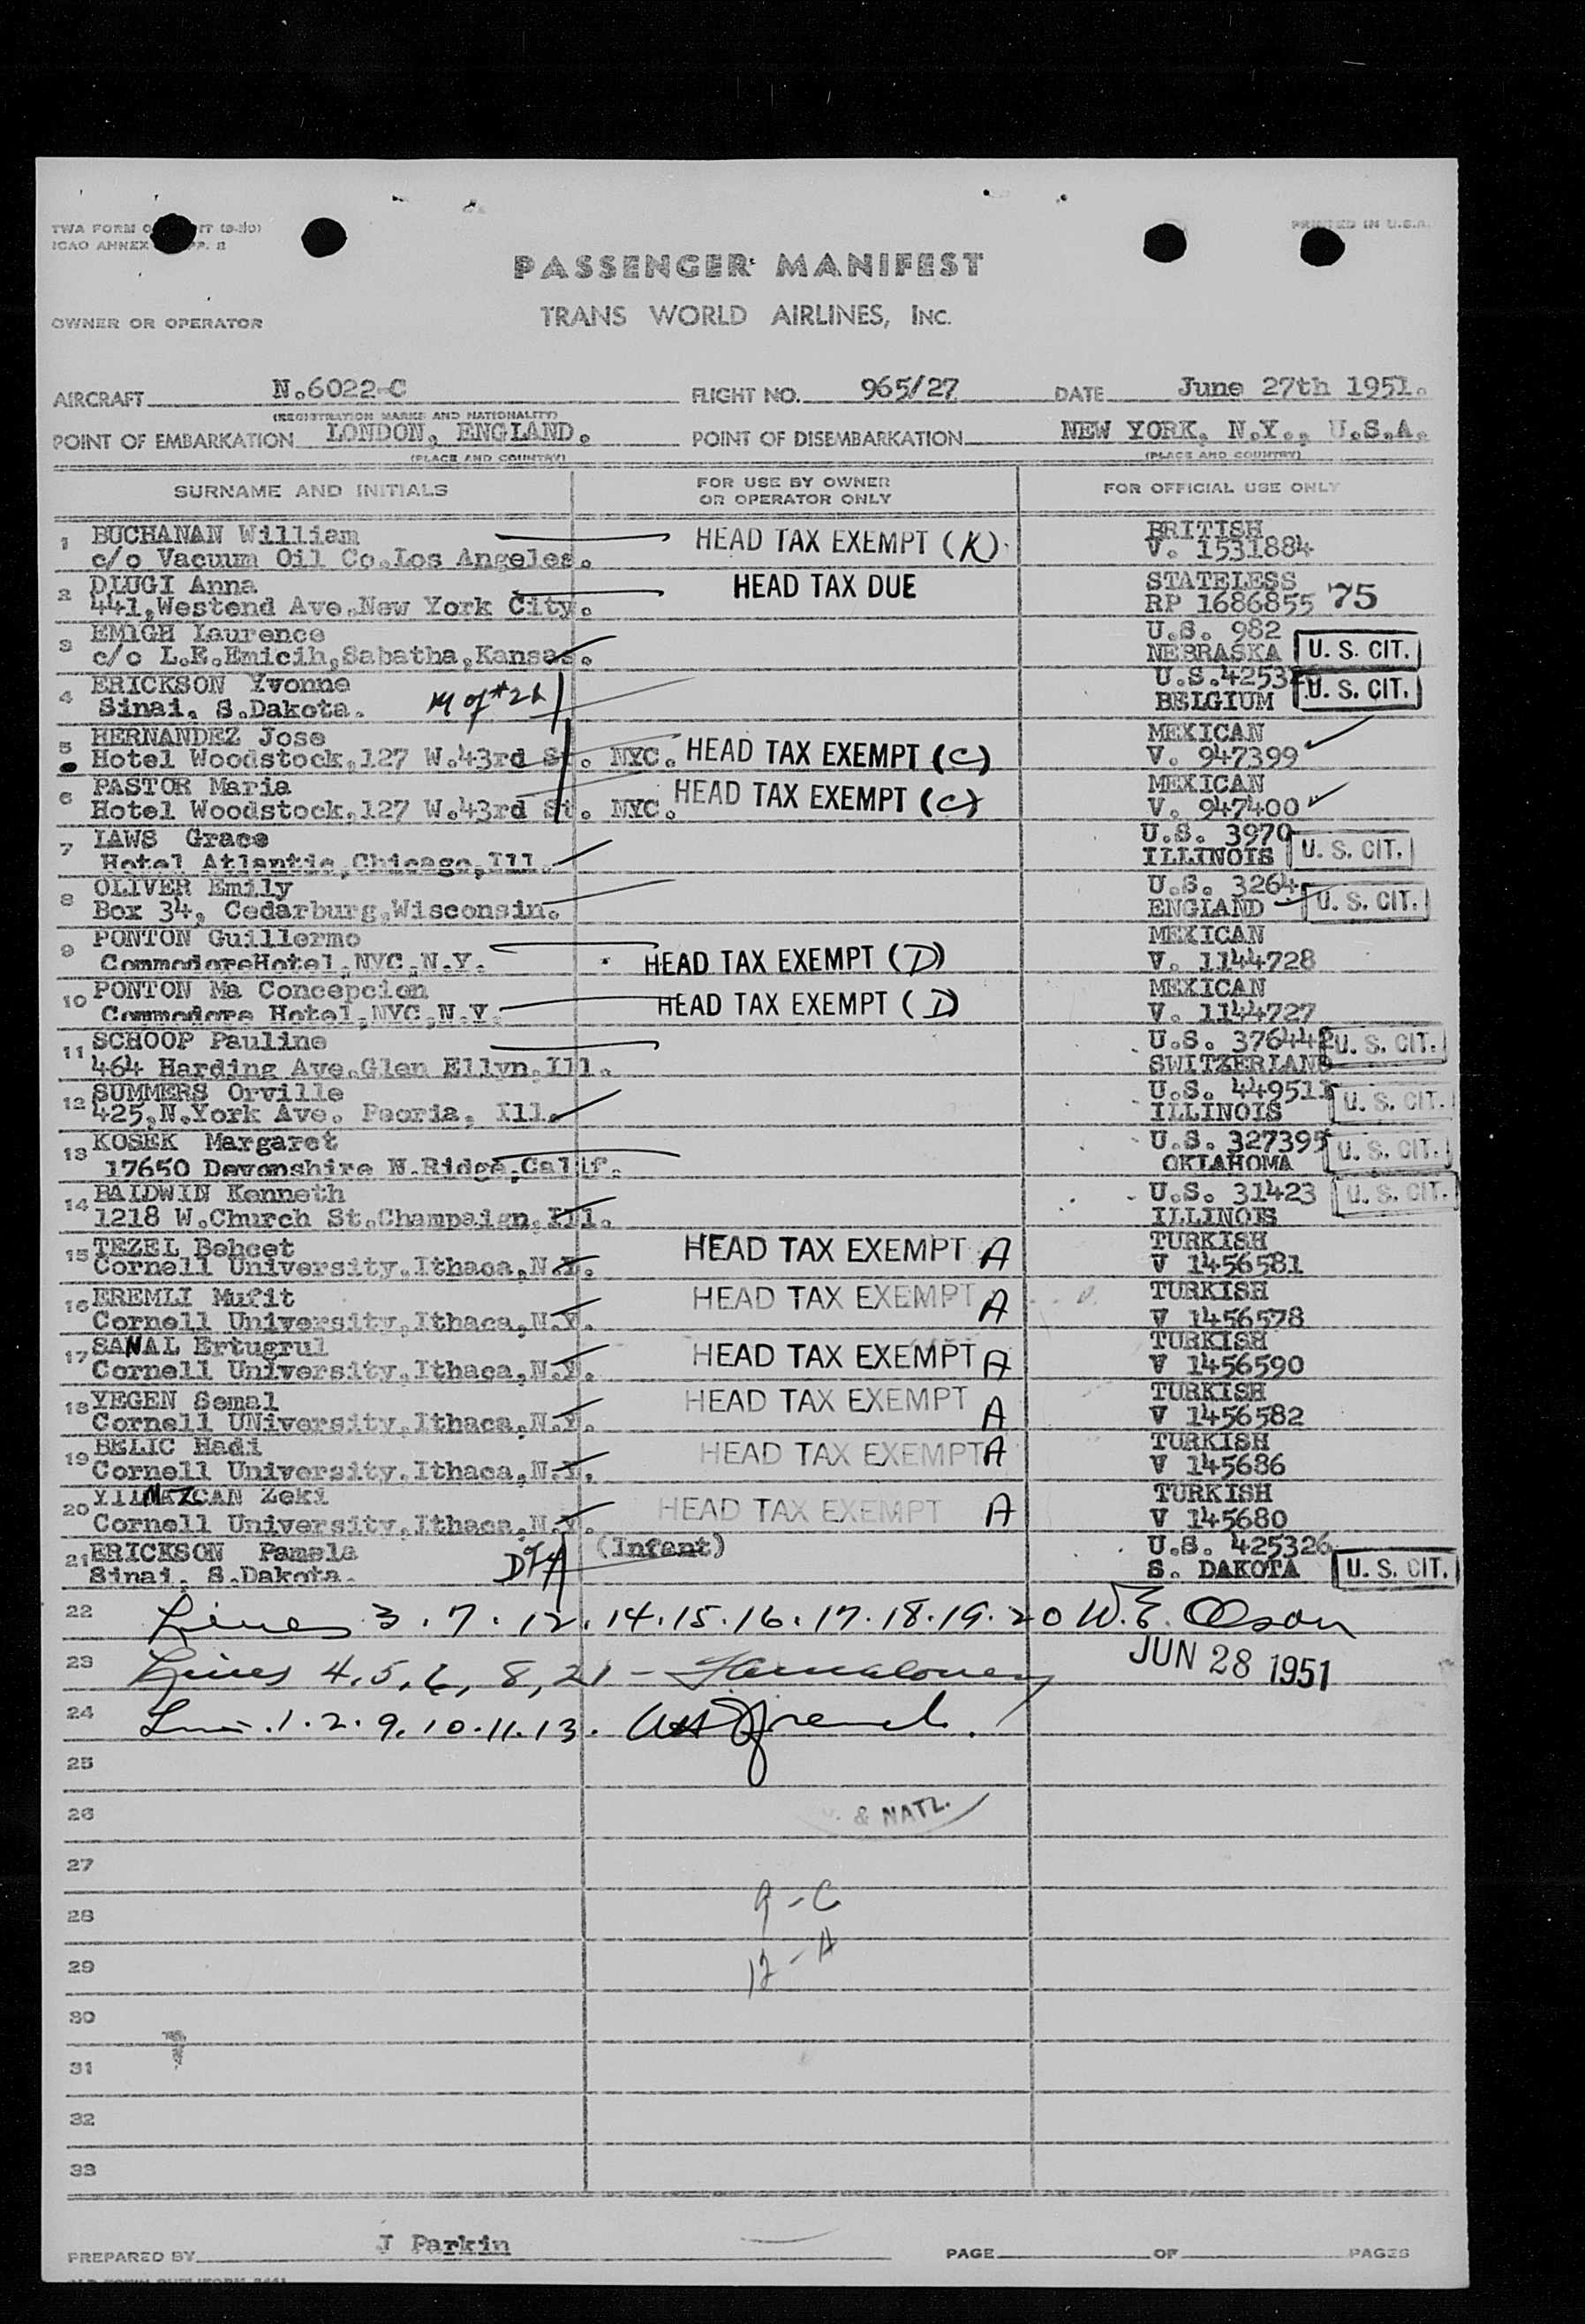 PRINTED IN U.S.A.
PASSENGER MANIFEST
TRANS WORLD AIRLINES, INC.
OWNER OR OPERATOR
AIRCRAFT N.6022-C FLIGHT NO. 965/27 DATE June 27th 1951.
(REGISTRATION MARKS AND NATIONALITY)
POINT OF EMBARKATION LONDON, ENGLAND. POINT OF DISEMBARKATION NEW YORK, N.Y., U.S.A.
(PLACE AND COUNTRY) (PLACE AND COUNTRY)
SURNAME AND INITIALS FOR USE BY OWNER OR OPERATOR ONLY FOR OFFICIAL USE ONLY
1 BUCHANAN William HEAD TAX EXEMPT (K) BRITISH
c/o Vacuum Oil Co.Los Angeles. V. 1531884
2 DLUGI Anna HEAD TAX DUE STATELESS
441,Westend Ave.New York City. RP 1686855 75
3 EMIGH Laurence U.S. 982
c/o L.E.Emicih,Sabatha,Kansas. NEBRASKA U. S. CIT.
4 ERICKSON Yvonne U.S.42532
Sinai, S.Dakota. M of #21 BELGIUM U. S. CIT.
5 HERNANDEZ Jose MEXICAN
Hotel Woodstock,127 W.43rd St. NYC. HEAD TAX EXEMPT (C) V. 947399
6 PASTOR Maria MEXICAN
Hotel Woodstock,127 W.43rd St. NYC. HEAD TAX EXEMPT (C) V. 947400
7 LAWS Grace U.S. 3970
Hotel Atlantic,Chicago,Ill. ILLINOIS U. S. CIT.
8 OLIVER Emily U.S. 3264
Box 34, Cedarburg,Wisconsin. ENGLAND U. S. CIT.
9 PONTON Guillermo MEXICAN
CommodoreHotel,NYC,N.Y. HEAD TAX EXEMPT (D) V. 1144728
10 PONTON Ma Concepcion MEXICAN
Commodore Hotel,NYC,N.Y. HEAD TAX EXEMPT (D) V. 1144727
11 SCHOOP Pauline U.S. 376442 U. S. CIT.
464 Harding Ave.Glen Ellyn,Ill. SWITZERLAND
12 SUMMERS Orville U.S. 449511
425,N.York Ave. Peoria, Ill. ILLINOIS U. S. CIT.
13 KOSEK Margaret U.S. 327395
17650 Devonshire N.Ridge,Calif. OKLAHOMA U. S. CIT.
14 BALDWIN Kenneth U.S. 31423 U. S. CIT.
1218 W.Church St.Champaign,Ill. ILLINOIS
15 TEZEL Behcet HEAD TAX EXEMPT A TURKISH
Cornell University.Ithaca,N.Y. V 1456581
16 EREMLI Mufit HEAD TAX EXEMPT A TURKISH
Cornell University,Ithaca,N.Y. V 1456578
17 SANAL Ertugrul HEAD TAX EXEMPT A TURKISH
Cornell University,Ithaca,N.Y. V 1456590
18 YEGEN Semal HEAD TAX EXEMPT A TURKISH
Cornell UNiversity,Ithaca,N.Y. V 1456582
19 BELIC Hadi HEAD TAX EXEMPT A TURKISH
Cornell University,Ithaca,N.Y. V 145686
20 YILMAZCAN Zeki HEAD TAX EXEMPT A TURKISH
Cornell University,Ithaca,N.Y. V 145680
21 ERICKSON Pamela (Infant) U.S. 425326
Sinai, S.Dakota. D of 4 S. DAKOTA U. S. CIT.
22 Lines 3.7.12.14.15.16.17.18.19.20 W.E. Olson
JUN 28 1951
23 Lines 4,5,6,8,21 -
24 Lines 1.2.9.10.11.13.
25
26 & NATZ.
27
28 9-C
29 12-A
30
31
32
33
PREPARED BY J Parkin PAGE OF PAGES